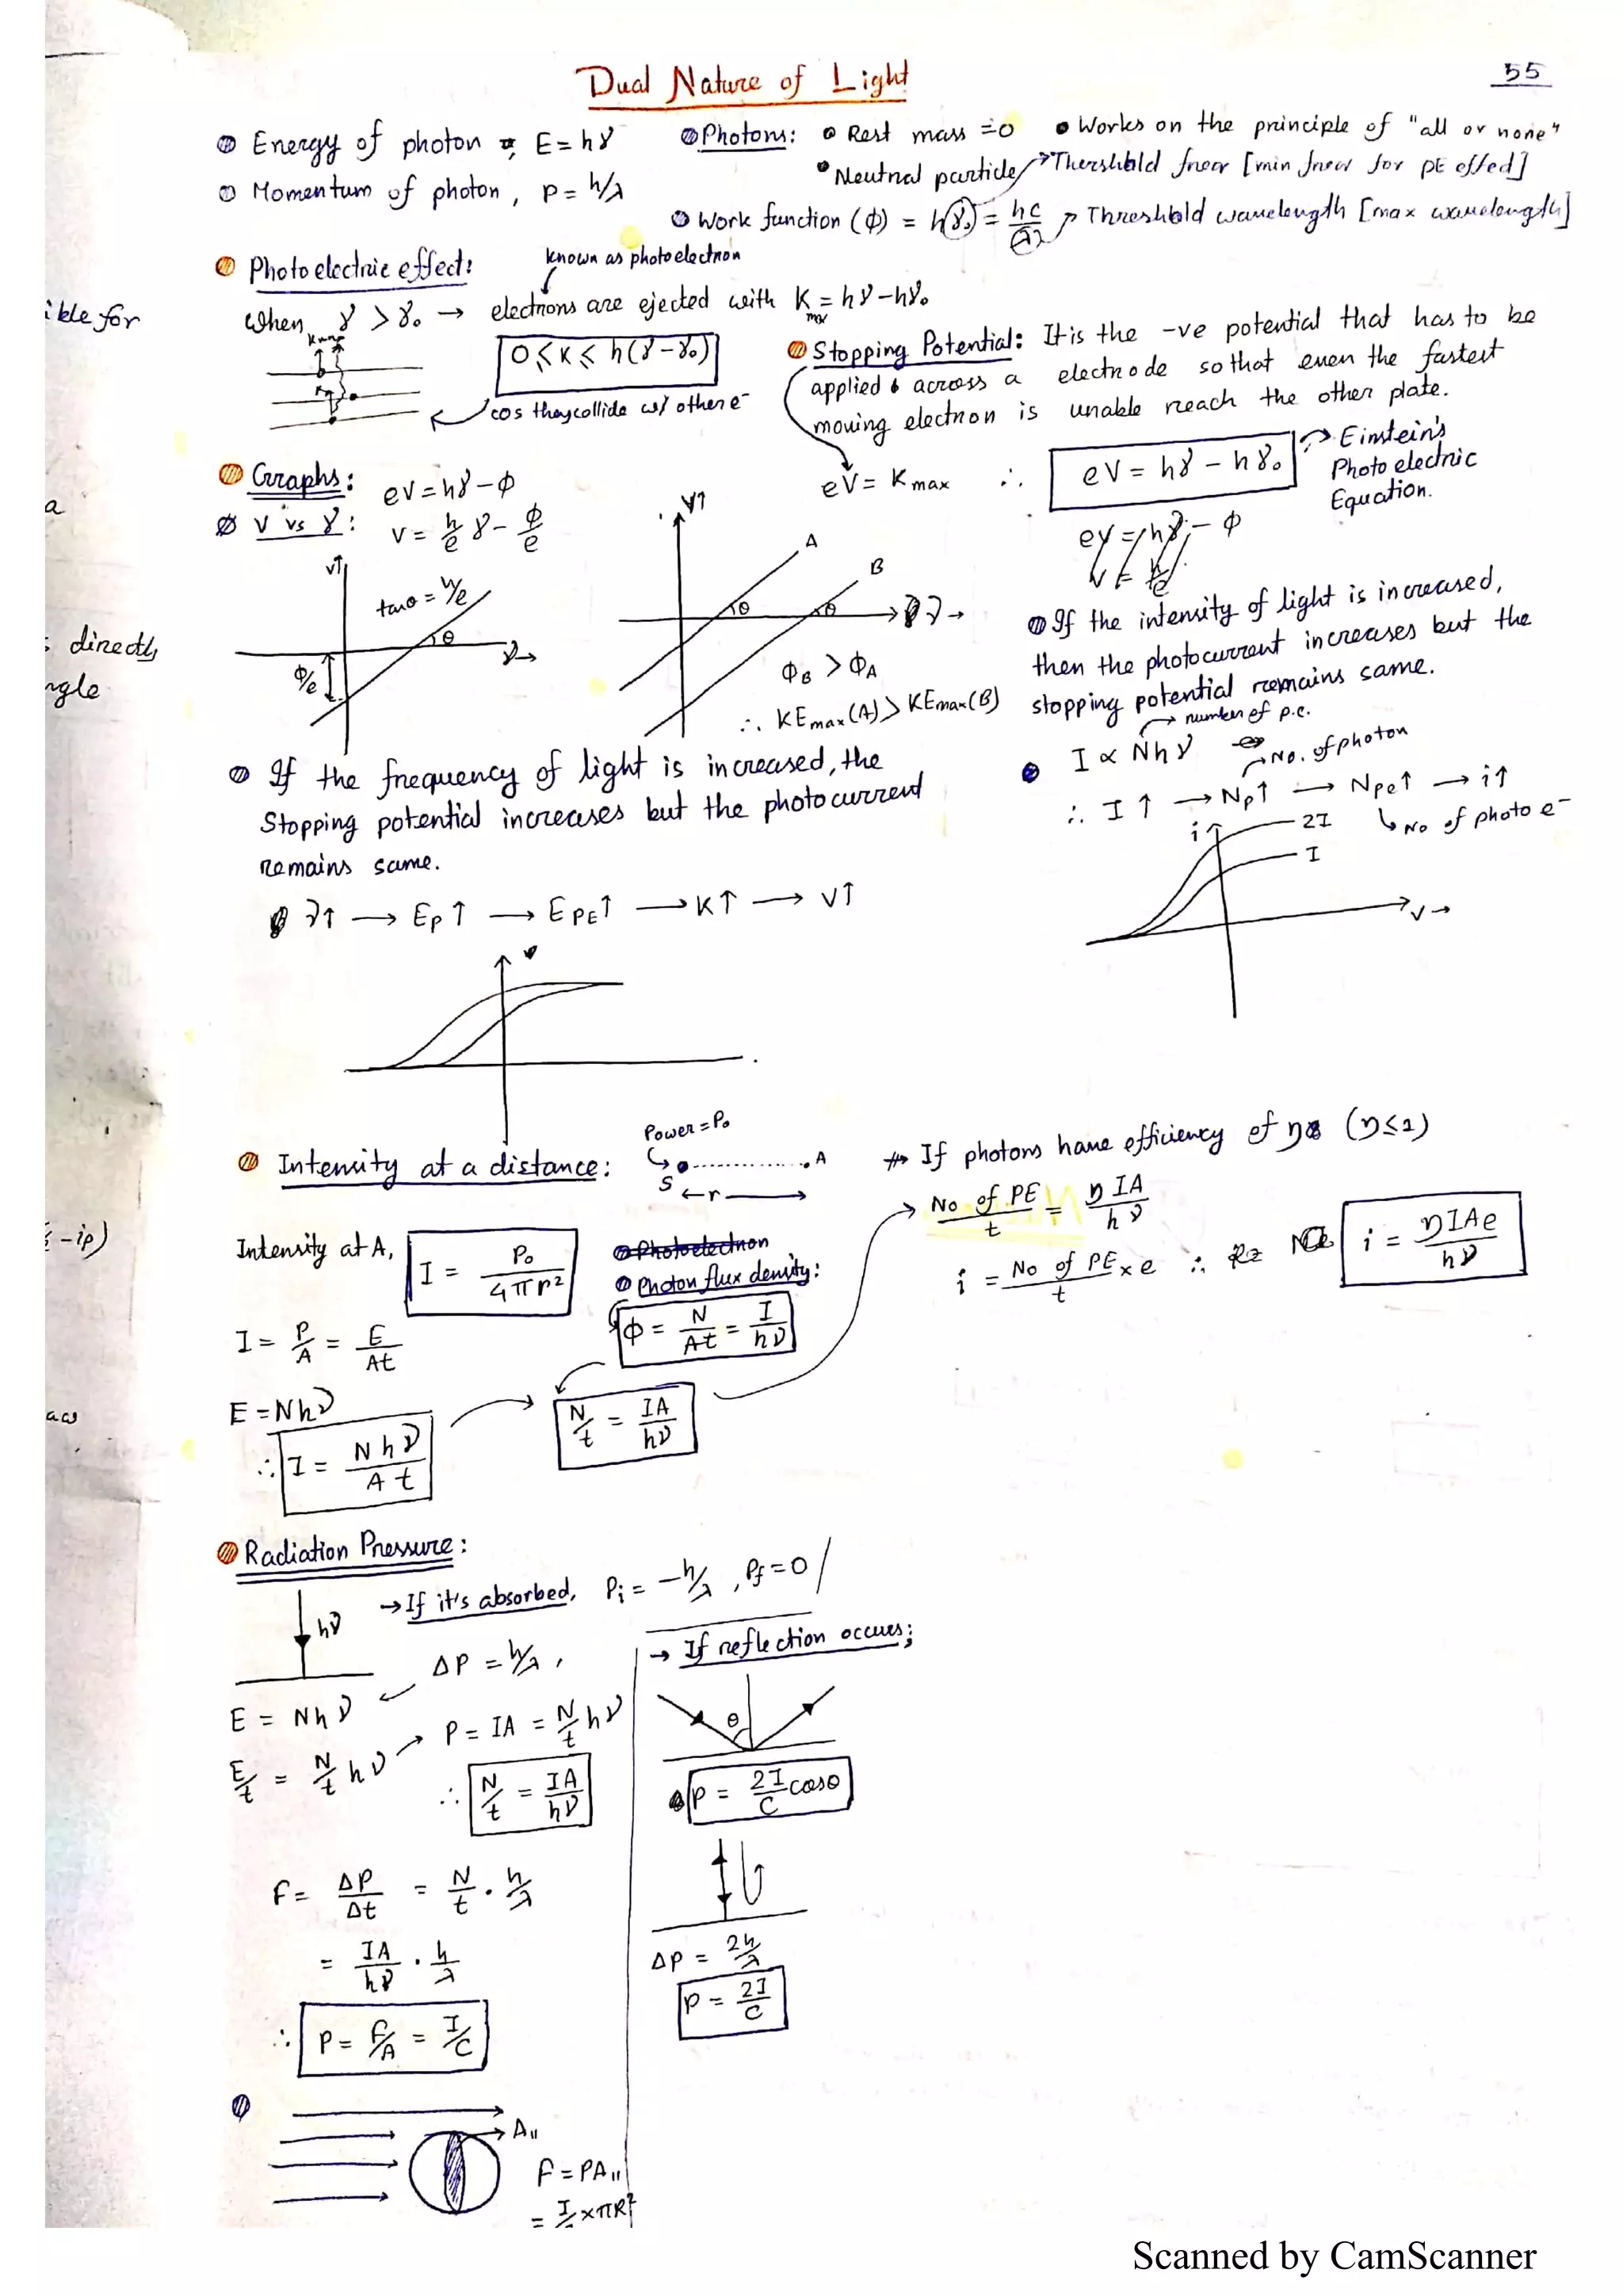 Dual Nature of Light
55
Energy of photon, E = hγ
Momentum of photon, p = h/λ
Photons: Rest mass = 0 • Works on the principle of "all or none"
• Neutral particle
Work function (ϕ) = hγ₀ = hc/λ
→ Thershlold frecr [min frecr for PE effect]
→ Threshlold wavelength [max wavelength]
Photoelectric effect:
known as photoelectron
When γ > γ₀ → electrons are ejected with K max = hγ - hγ₀
0 ≤ K ≤ h(γ - γ₀)
cos they collide w/ other e⁻
Stopping Potential: It is the -ve potential that has to be
applied across a electrode so that even the fastest
moving electron is unable reach the other plate.
eV = K max ∴ eV = hγ - hγ₀
→ Einstein's
Photo electric
Equation.
Graphs: eV = hγ - ϕ
V vs γ: V = h/e γ - ϕ/e
V↑
tanθ = h/e
θ
ν→
ϕ/e
V↑
A
B
θ
θ
ν→
ϕB > ϕA
∴ KEmax(A) > KEmax(B)
If the intensity of light is increased,
then the photocurrent increases but the
stopping potential remains same.
→ number of p.e.
I ∝ Nhν
→ No. of photon
∴ I ↑ → Np↑ → Npe↑ → i↑
↳ No of photo e⁻
i↑
2I
I
V→
If the frequency of light is increased, the
Stopping potential increases but the photocurrent
remains same.
ν↑ → EP ↑ → EPE↑ → K↑ → V↑
Intensity at a distance:
Power = P₀
S
A
← r →
Intensity at A, I = P₀/4πr²
Photoelectron
Photon flux density:
ϕ = N/At = I/hν
I = P/A = E/At
E = Nhν
∴ I = Nhν/At
N/t = IA/hν
If photons have efficiency of η (η≤1)
No of PE/t = ηIA/hν
i = No of PE/t × e ∴ i = ηIAe/hν
Radiation Pressure:
hν
→ If it's absorbed, Pi = -h/λ, Pf = 0
ΔP = h/λ,
E = Nhν
E/t = N/t hν
P = IA = N/t hν
∴ N/t = IA/hν
F = ΔP/Δt = N/t · h/λ
= IA/hν · h/λ
∴ P = F/A = I/C
→ If reflection occurs;
θ
P = 2I/C cosθ
ΔP = 2h/λ
P = 2I/C
A॥
F = PA॥
= I/ × πR²
ible for
a
directly
ngle
-ip)
Scanned by CamScanner